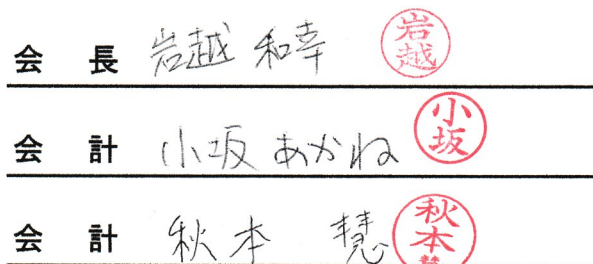 会長 岩越 和幸 岩越
会計 小坂 あかね 小坂
会計 秋本 慧 秋本